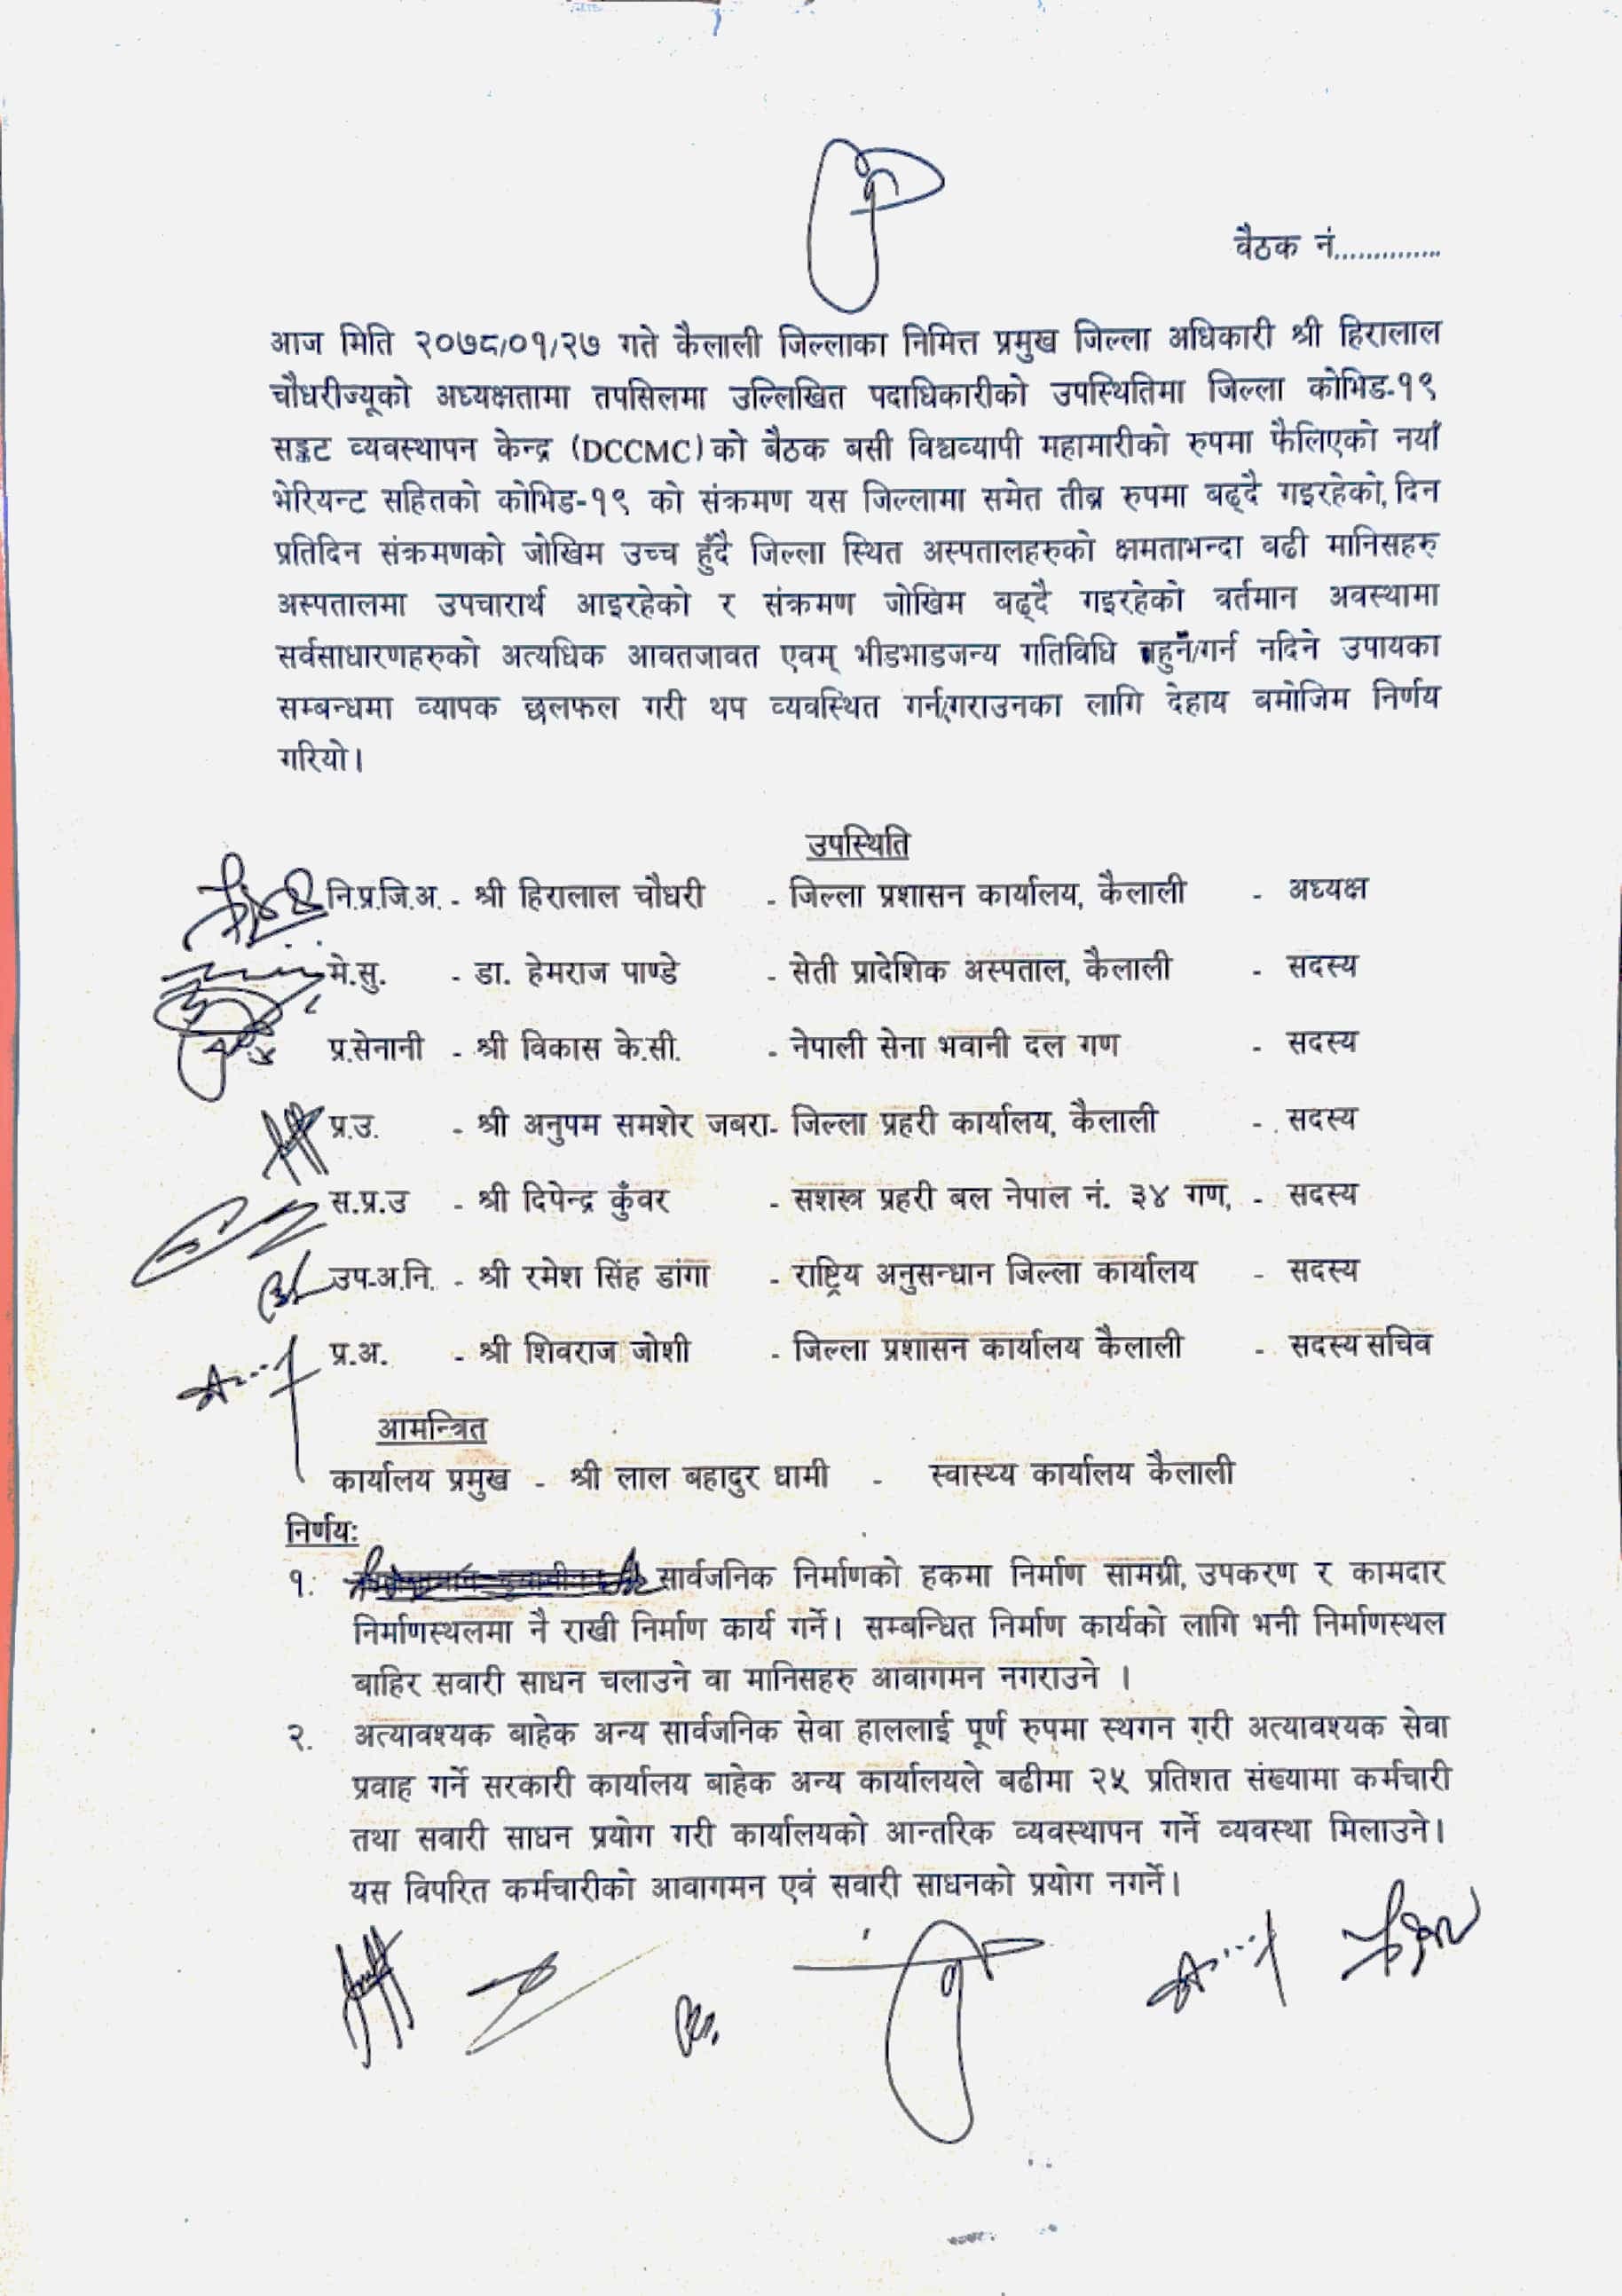 वैठक नं..............
आज मिति २०७८/०१/२७ गते कैलाली जिल्लाका निमित्त प्रमुख जिल्ला अधिकारी श्री हिरालाल
चौधरीज्यूको अध्यक्षतामा तपसिलमा उल्लिखित पदाधिकारीको उपस्थितिमा जिल्ला कोभिड-१९
सङ्कट व्यवस्थापन केन्द्र (DCCMC) को बैठक बसी विश्वव्यापी महामारीको रुपमा फैलिएको नयाँ
भेरियन्ट सहितको कोभिड-१९ को संक्रमण यस जिल्लामा समेत तीब्र रुपमा बढ्दै गइरहेको, दिन
प्रतिदिन संक्रमणको जोखिम उच्च हुँदै जिल्ला स्थित अस्पतालहरुको क्षमताभन्दा बढी मानिसहरु
अस्पतालमा उपचारार्थ आइरहेको र संक्रमण जोखिम बढ्दै गइरहेको वर्तमान अवस्थामा
सर्वसाधारणहरुको अत्यधिक आवतजावत एवम् भीडभाडजन्य गतिविधि गर्न नदिने उपायका
सम्बन्धमा व्यापक छलफल गरी थप व्यवस्थित गर्न/गराउनका लागि देहाय बमोजिम निर्णय
गरियो।
उपस्थिति
नि.प्र.जि.अ. - श्री हिरालाल चौधरी - जिल्ला प्रशासन कार्यालय, कैलाली - अध्यक्ष
मे.सु. - डा. हेमराज पाण्डे - सेती प्रादेशिक अस्पताल, कैलाली - सदस्य
प्र.सेनानी - श्री विकास के.सी. - नेपाली सेना भवानी दल गण - सदस्य
प्र.उ. - श्री अनुपम समशेर जबरा- जिल्ला प्रहरी कार्यालय, कैलाली - सदस्य
स.प्र.उ - श्री दिपेन्द्र कुँवर - सशस्त्र प्रहरी बल नेपाल नं. ३४ गण, - सदस्य
उप-अ.नि. - श्री रमेश सिंह डांगा - राष्ट्रिय अनुसन्धान जिल्ला कार्यालय - सदस्य
प्र.अ. - श्री शिवराज जोशी - जिल्ला प्रशासन कार्यालय कैलाली - सदस्य सचिव
आमन्त्रित
कार्यालय प्रमुख - श्री लाल बहादुर धामी - स्वास्थ्य कार्यालय कैलाली
निर्णयः
१. सार्वजनिक निर्माणको हकमा निर्माण सामग्री, उपकरण र कामदार
निर्माणस्थलमा नै राखी निर्माण कार्य गर्ने। सम्बन्धित निर्माण कार्यको लागि भनी निर्माणस्थल
बाहिर सवारी साधन चलाउने वा मानिसहरु आवागमन नगराउने ।
२. अत्यावश्यक बाहेक अन्य सार्वजनिक सेवा हाललाई पूर्ण रुपमा स्थगन गरी अत्यावश्यक सेवा
प्रवाह गर्ने सरकारी कार्यालय बाहेक अन्य कार्यालयले बढीमा २५ प्रतिशत संख्यामा कर्मचारी
तथा सवारी साधन प्रयोग गरी कार्यालयको आन्तरिक व्यवस्थापन गर्ने व्यवस्था मिलाउने।
यस विपरित कर्मचारीको आवागमन एवं सवारी साधनको प्रयोग नगर्ने।